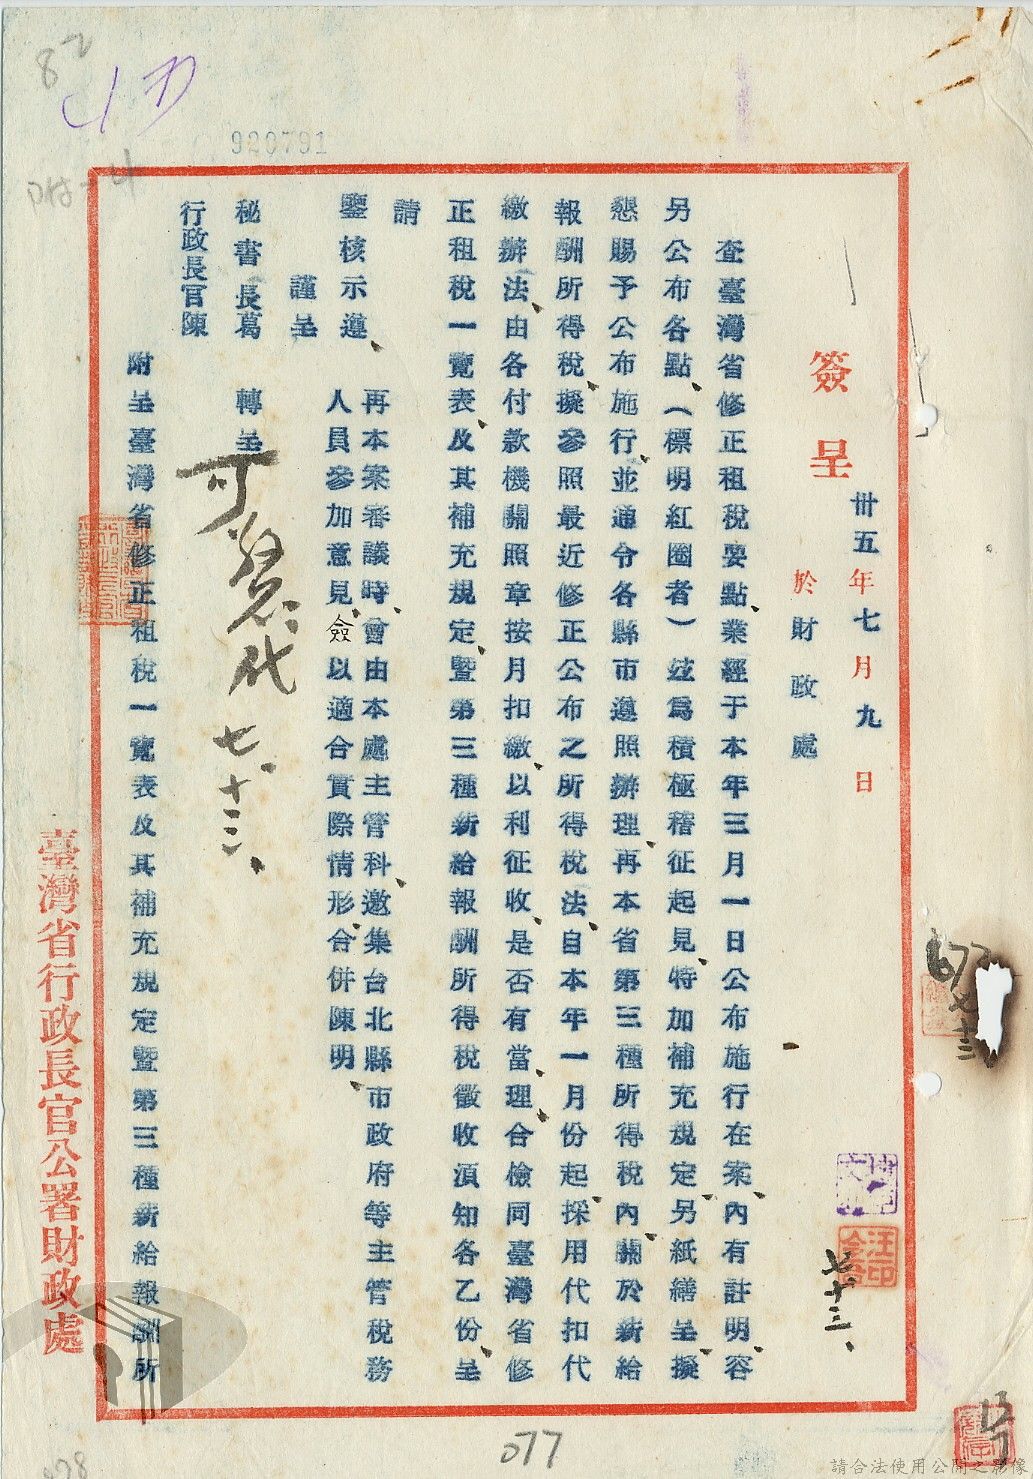 82
920791
簽呈
卅五年七月九日
於財政處
查臺灣省修正租稅要點業經于本年三月一日公布施行在案、內有註明容
另公布各點、(標明紅圈者)玆爲積極稽征起見、特加補充規定、另紙繕呈、擬
懇賜予公布施行、並通令各縣市遵照辦理、再本省第三種所得稅內、關於新給
報酬所得稅、擬參照最近修正公布之所得稅法、自本年一月份起、採用代扣代
繳辦法、由各付款機關照章按月扣繳、以利征收、是否有當、理合檢同臺灣省修
正租稅一覽表、及其補充規定、暨第三種新給報酬所得稅徵收須知各乙份、呈
請
鑒核示遵、
再本案審議時、曾由本處主管科、邀集台北縣市政府等主管稅務
人員參加意見、僉以適合實際情形、合併陳明、
謹呈
秘書長葛 轉呈
行政長官陳
可
代
七、十三、
附呈臺灣省修正租稅一覽表及其補充規定暨第三種新給報酬所
臺灣省行政長官公署財政處
七十三、
汪
077
請合法使用公開之影像